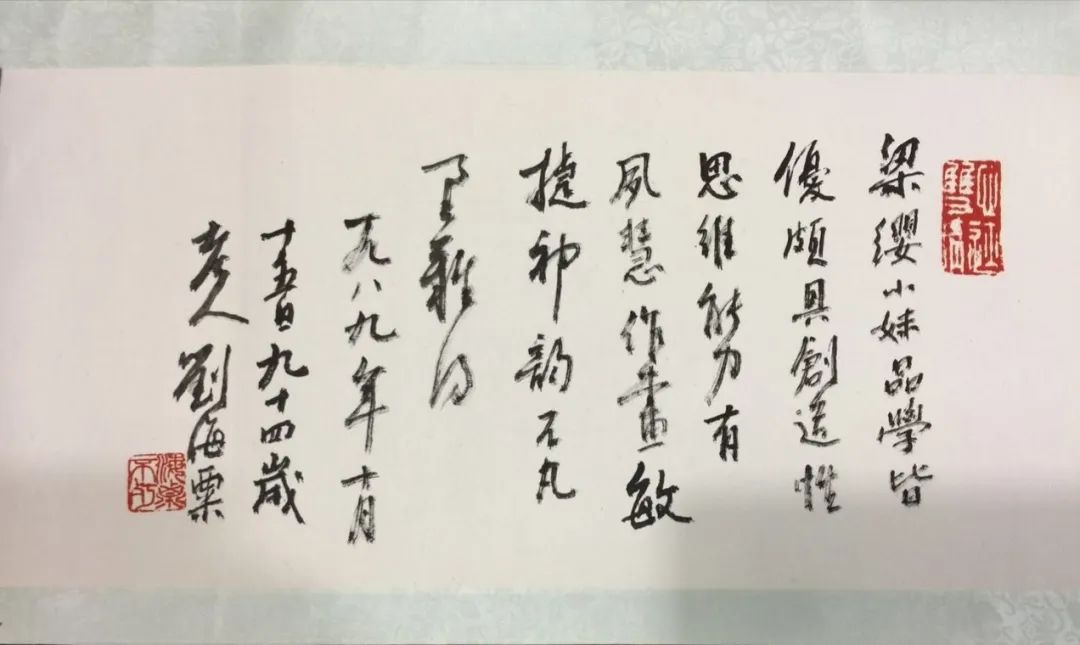 梁纓小妹品學皆
優頗具創造性
思維能力有
夙慧作畫敏
捷神韵不凡
難得
一九八九年十月
十五日九十四歲
老人劉海粟